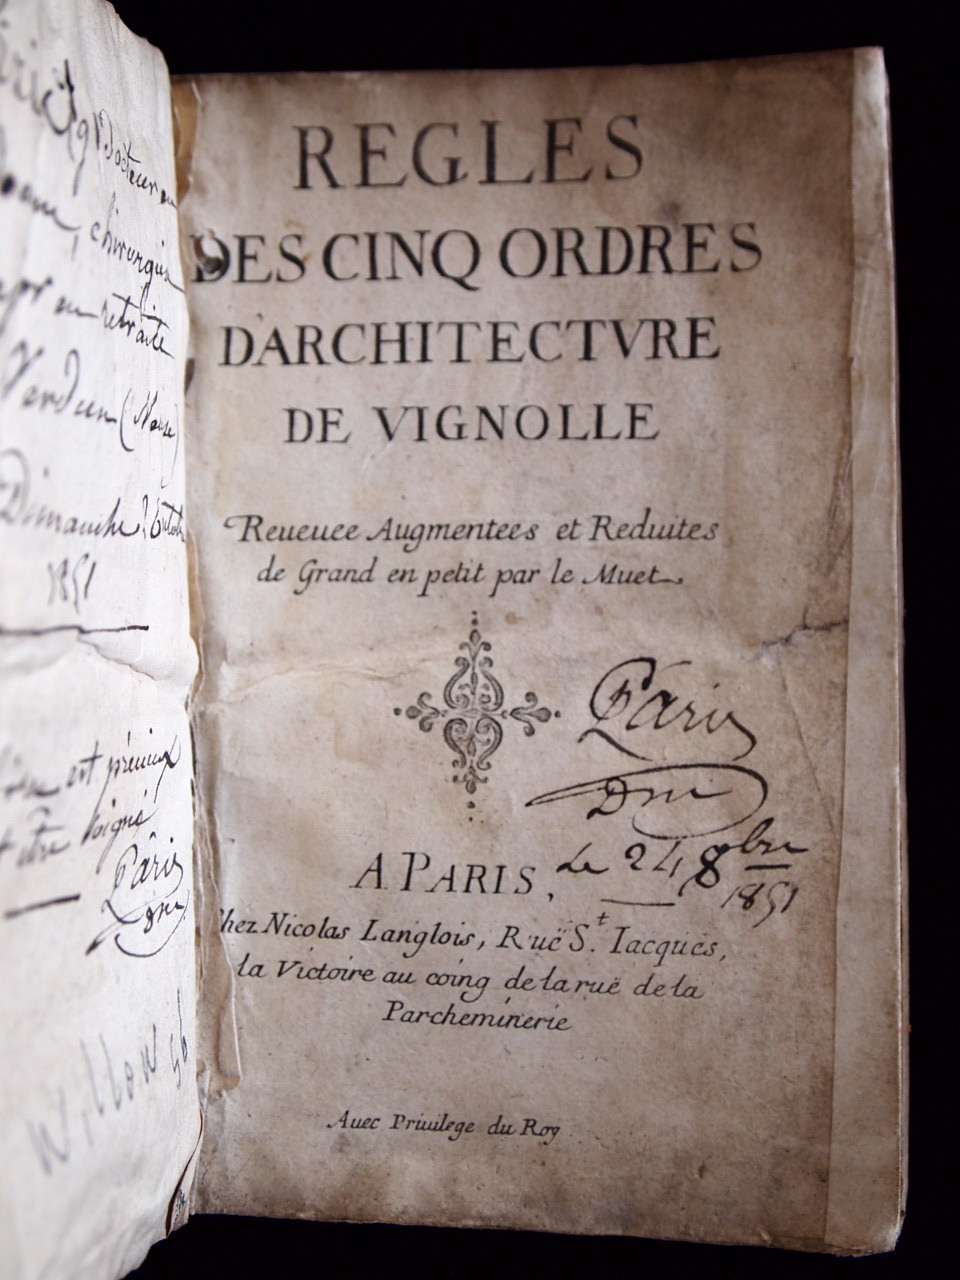 Docteur en
chirurgien
en retraite
Verdun (Meuse)
Dimanche
1851
est précieux
être soigné
Pâris
Dm
Willow
REGLES
DES CINQ ORDRES
D'ARCHITECTVRE
DE VIGNOLLE
Reueuee Augmentees et Reduites
de Grand en petit par le Muet
Pâris
Dm
A PARIS,
Le 24 8bre
1851
Chez Nicolas Langlois, Ruë St. Iacques,
la Victoire au coing de la ruë de la
Parcheminerie
Auec Priuilege du Roy